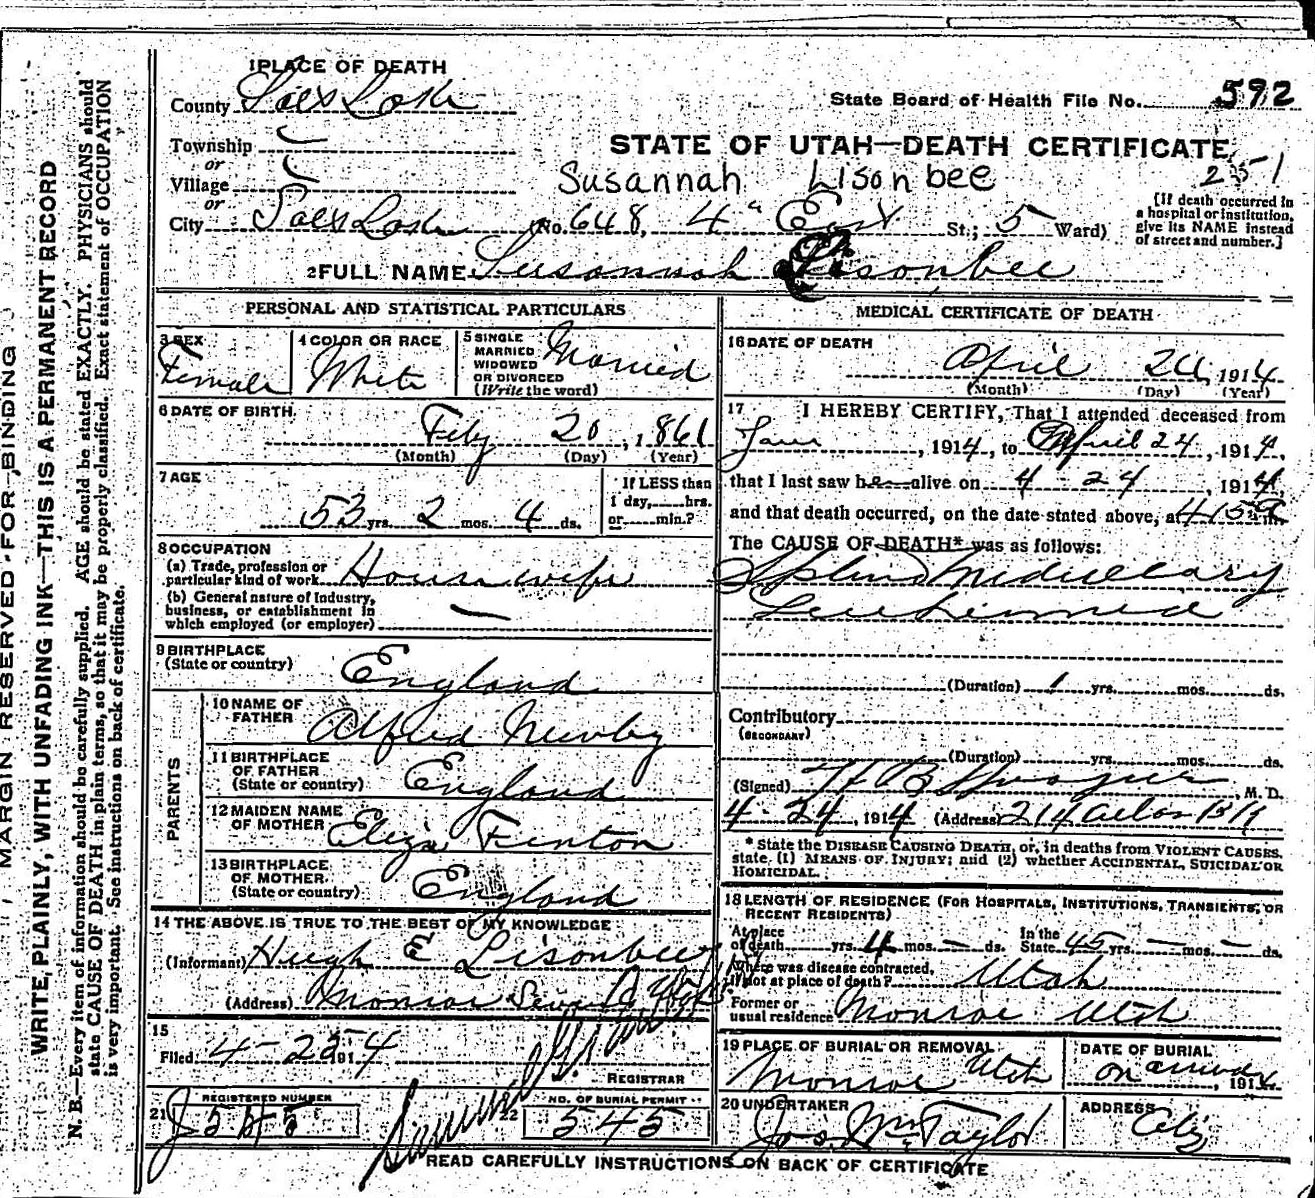 MARGIN RESERVED FOR BINDING
WRITE PLAINLY, WITH UNFADING INK—THIS IS A PERMANENT RECORD
N. B.—Every item of information should be carefully supplied. AGE should be stated EXACTLY. PHYSICIANS should
state CAUSE OF DEATH in plain terms, so that it may be properly classified. Exact statement of OCCUPATION
is very important. See instructions on back of certificate.
1 PLACE OF DEATH
County Salt Lake
State Board of Health File No. 592
Township
or
STATE OF UTAH—DEATH CERTIFICATE
Village
Susannah Lisonbee
251
or
City Salt Lake No. 648, 4" East St.; 5 Ward)
[If death occurred in
a hospital or institution,
give its NAME instead
of street and number.]
2 FULL NAME Susannah Lisonbee
PERSONAL AND STATISTICAL PARTICULARS
3 SEX
Female
4 COLOR OR RACE
White
5 SINGLE
MARRIED
WIDOWED
OR DIVORCED
(Write the word)
Married
6 DATE OF BIRTH
Feby 20, 1861
(Month) (Day) (Year)
7 AGE
53 yrs. 2 mos. 4 ds.
If LESS than
1 day, hrs.
or min.?
8 OCCUPATION
(a) Trade, profession or
particular kind of work Housewife
(b) General nature of Industry,
business, or establishment in
which employed (or employer) —
9 BIRTHPLACE
(State or country) England
PARENTS
10 NAME OF
FATHER Alfred Newby
11 BIRTHPLACE
OF FATHER
(State or country) England
12 MAIDEN NAME
OF MOTHER Eliza Fenton
13 BIRTHPLACE
OF MOTHER
(State or country) England
14 THE ABOVE IS TRUE TO THE BEST OF MY KNOWLEDGE
(Informant) Hugh E Lisonbee
(Address) Monroe Sevier
15
Filed 4-25 1914
REGISTRAR
21 REGISTERED NUMBER
J545
22 NO. OF BURIAL PERMIT
545
MEDICAL CERTIFICATE OF DEATH
16 DATE OF DEATH
April 24, 1914
(Month) (Day) (Year)
17 I HEREBY CERTIFY, That I attended deceased from
Jan , 1914, to April 24, 1914,
that I last saw her alive on 4-24, 1914,
and that death occurred, on the date stated above, at 415 a m.
The CAUSE OF DEATH* was as follows:
Medullary
(Duration) 1 yrs. mos. ds.
Contributory
(SECONDARY)
(Duration) yrs. mos. ds.
(Signed) , M. D.
4-24, 1914 (Address) 214
* State the DISEASE CAUSING DEATH, or, in deaths from VIOLENT CAUSES,
state, (1) MEANS OF INJURY; and (2) whether ACCIDENTAL, SUICIDAL OR
HOMICIDAL.
18 LENGTH OF RESIDENCE (FOR HOSPITALS, INSTITUTIONS, TRANSIENTS, OR
RECENT RESIDENTS)
At place
of death yrs. 4 mos. — ds.
In the
State 45 yrs. — mos. — ds.
Where was disease contracted,
if not at place of death? Utah
Former or
usual residence Monroe Utah
19 PLACE OF BURIAL OR REMOVAL
Monroe Utah
DATE OF BURIAL
on arrival, 1914
20 UNDERTAKER
Jos. Wm. Taylor
ADDRESS
City
READ CAREFULLY INSTRUCTIONS ON BACK OF CERTIFICATE